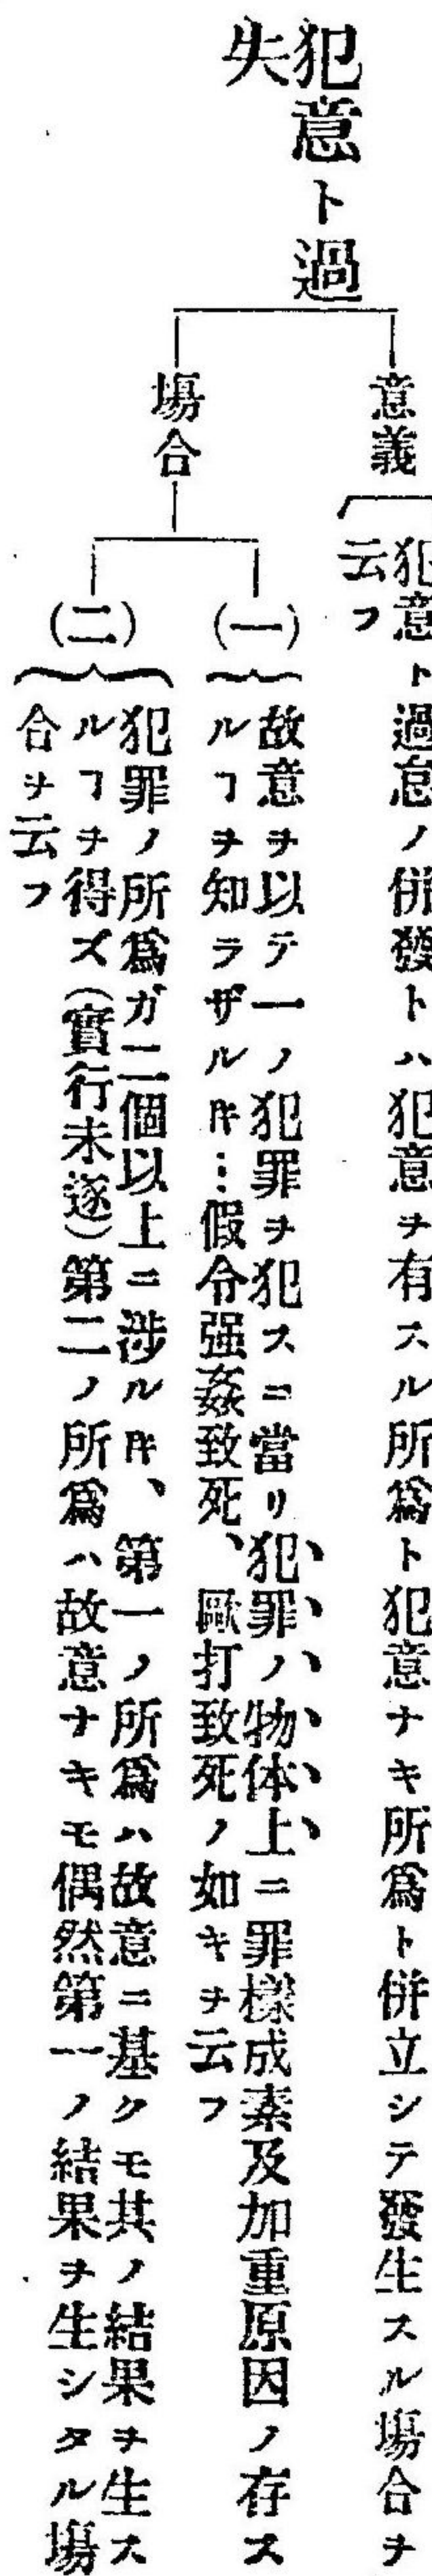 犯意ト過
失
意義
犯意ト過怠ノ併發トハ犯意ヲ有スル所爲ト犯意ナキ所爲ト併立シテ發生スル塲合ヲ
云フ
塲合
(一)
故意ヲ以テ一ノ犯罪ヲ犯スニ當リ犯罪ノ物体上ニ罪樣成素及加重原因ノ存ス
ルヿヲ知ラザル片…假令强姦致死、毆打致死ノ如キヲ云フ
(二)
犯罪ノ所爲ガ二個以上ニ涉ル片、第一ノ所爲ハ故意ニ基クモ其ノ結果ヲ生ス
ルヿヲ得ズ(實行未遂)第二ノ所爲ハ故意ナキモ偶然第一ノ結果ヲ生シタル塲
合ヲ云フ